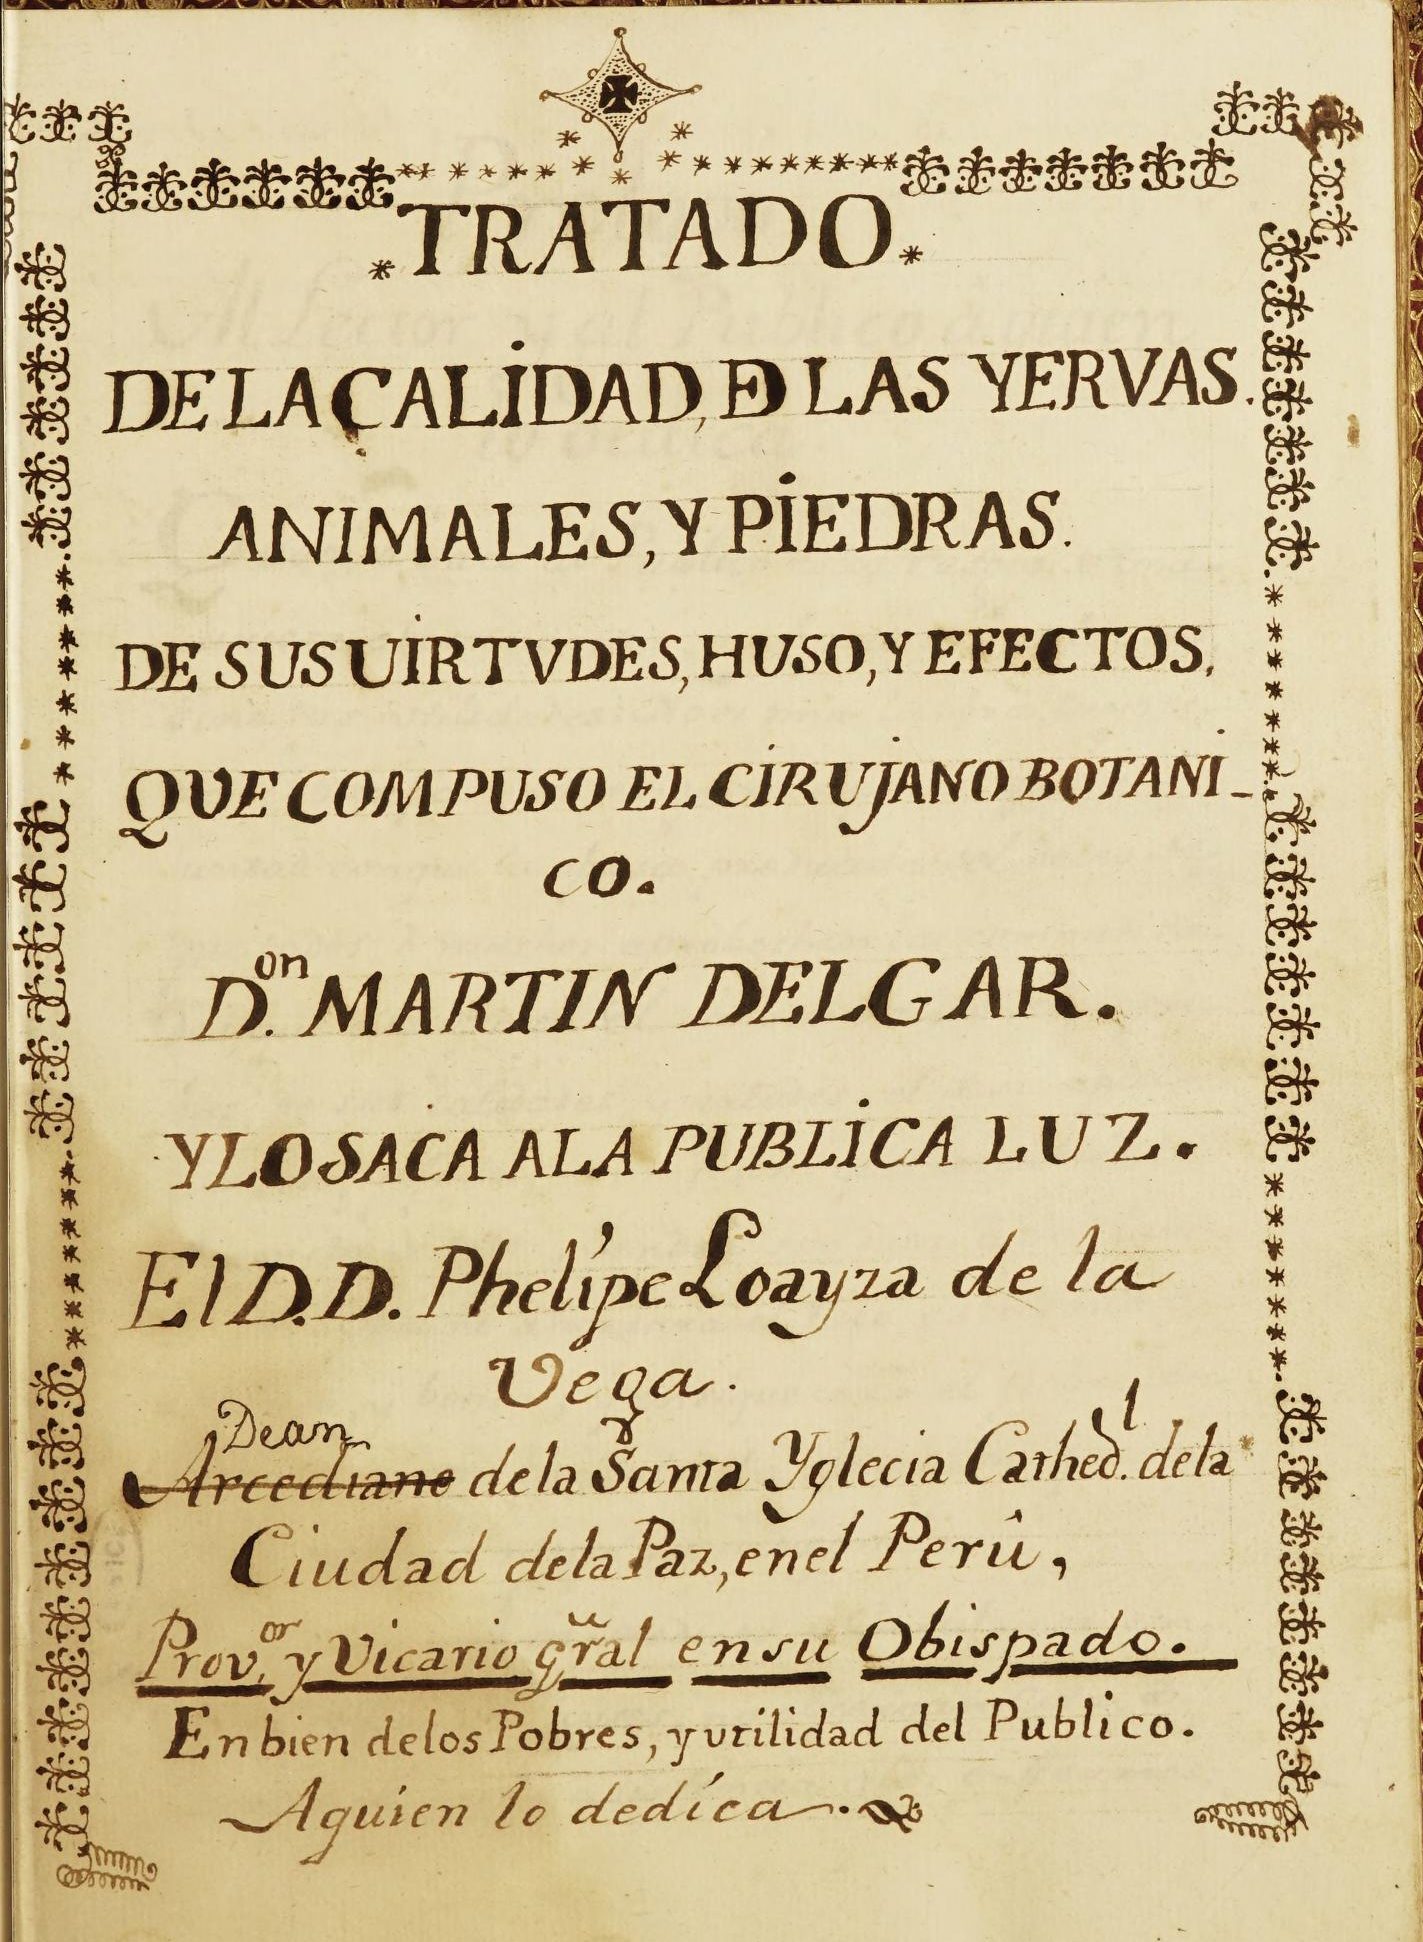 TRATADO.
DE LA CALIDAD, DE LAS YERVAS.
ANIMALES, Y PIEDRAS.
DE SUS UIRTVDES, HUSO, Y EFECTOS,
QUE COMPUSO EL CIRUJANO BOTANI-
CO.
D.on MARTIN DELGAR.
Y LO SACA A LA PUBLICA LUZ.
El D.D. Phelipe Loayza de la
Vega.
Dean
Arcediano de la Santa Yglecia Cathed.l de la
Ciudad de la Paz, en el Perû,
Prov.or y Vicario gral en su Obispado.
En bien de los Pobres, y utilidad del Publico.
Aquien lo dedica.